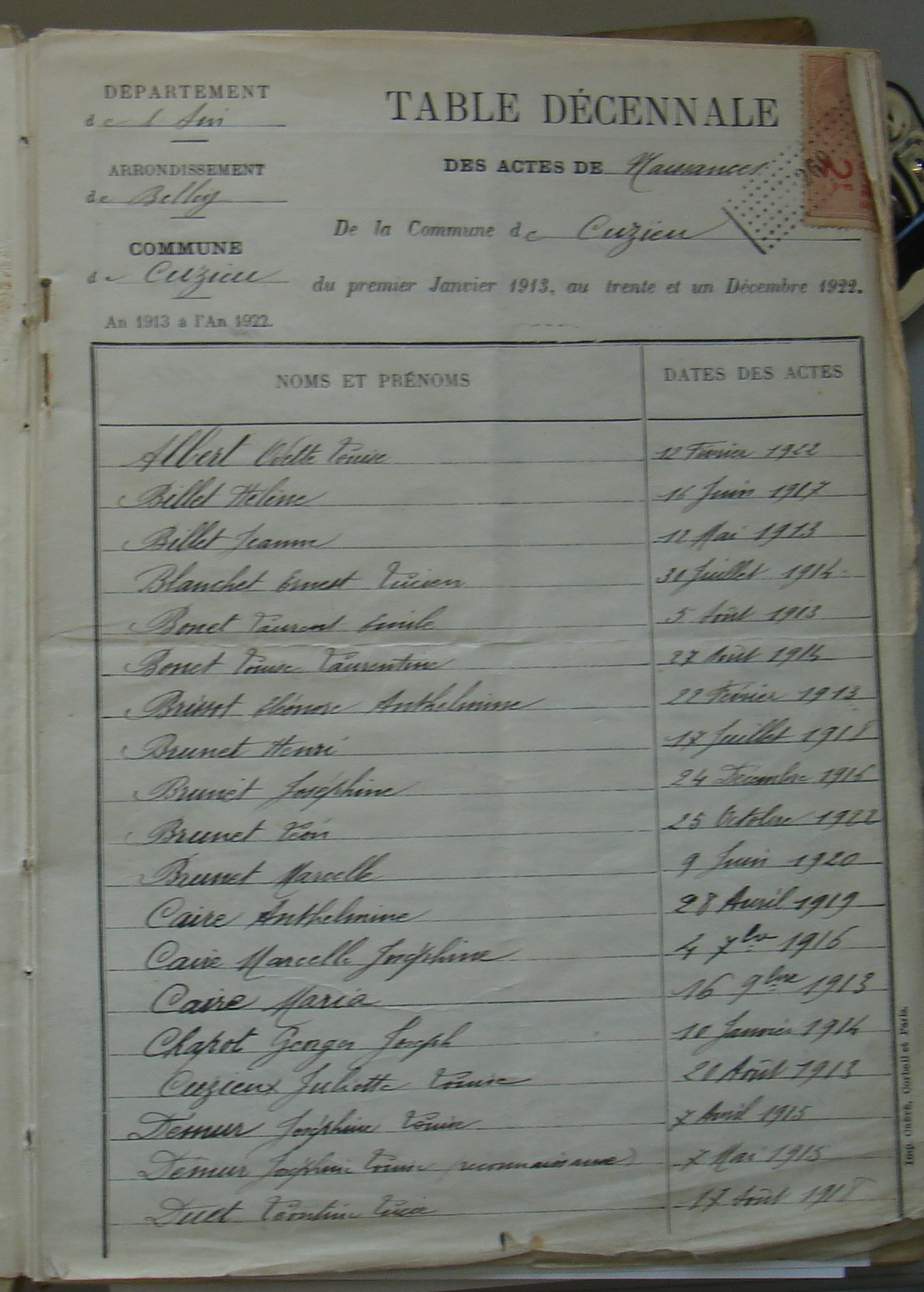 DÉPARTEMENT
de l'Ain
ARRONDISSEMENT
de Belley
COMMUNE
de Cuzieu
An 1913 à l'An 1922.
TABLE DÉCENNALE
DES ACTES DE Naissances
De la Commune de Cuzieu
du premier Janvier 1913, au trente et un Décembre 1922.
2F
NOMS ET PRÉNOMS DATES DES ACTES
Albert Odette Louise 12 Février 1922
Billet Hélène 16 Juin 1917
Billet Jeanne 12 Mai 1913
Blanchet Ernest Lucien 30 Juillet 1914
Bonet Laurent Emile 5 Août 1913
Bonet Louise Laurentine 27 Août 1914
Brissot Eléonore Anthelmine 22 Février 1913
Brunet Henri 17 Juillet 1918
Brunet Joséphine 24 Décembre 1916
Brunet Léon 25 Octobre 1922
Brunet Marcelle 9 Juin 1920
Caire Anthelmine 28 Avril 1919
Caire Marcelle Joséphine 4 7bre 1916
Caire Maria 16 9bre 1913
Chapot Georges Joseph 10 Janvier 1914
Cuzieux Juliette Louise 20 Août 1913
Demur Joséphine Louise 7 Avril 1915
Demur Joséphine Louise (reconnaissance) 7 Mai 1915
Duet Léontine Lucie 17 Août 1918